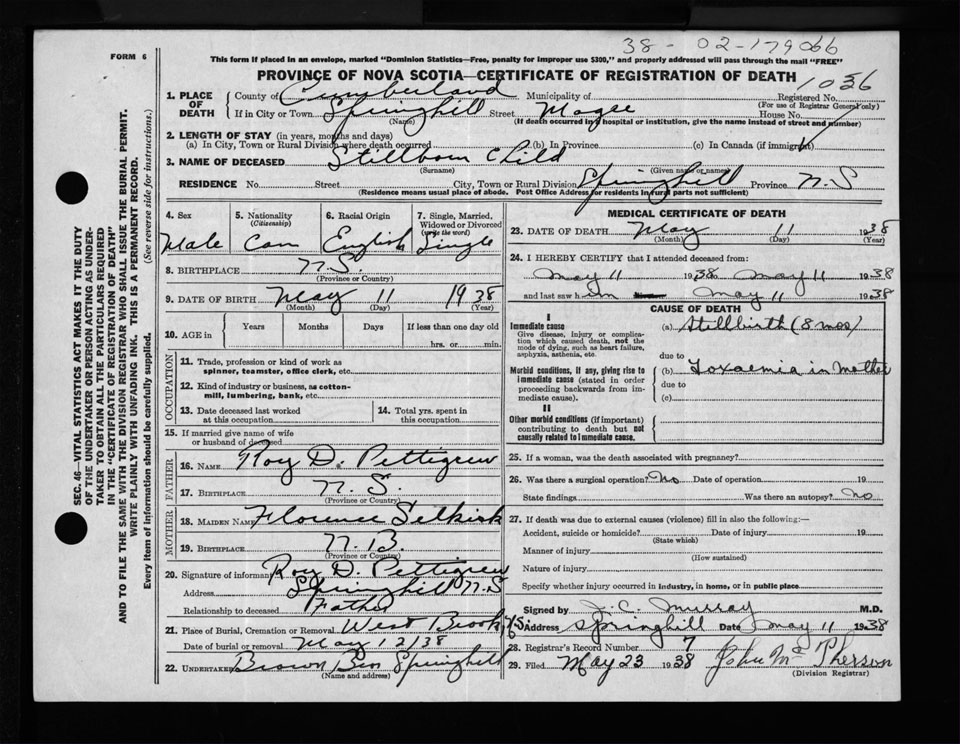 38 - 02-179066
FORM 6
This form if placed in an envelope, marked "Dominion Statistics—Free, penalty for improper use $300," and properly addressed will pass through the mail "FREE"
PROVINCE OF NOVA SCOTIA—CERTIFICATE OF REGISTRATION OF DEATH
1036
1. PLACE OF DEATH
County of Cumberland Municipality of Registered No.
(For use of Registrar General only)
If in City or Town Springhill Street House No.
(Name) (If death occurred in a hospital or institution, give the name instead of street and number)
2. LENGTH OF STAY (in years, months and days)
(a) In City, Town or Rural Division where death occurred (b) In Province (c) In Canada (if immigrant)
3. NAME OF DECEASED Stillborn Child
(Surname) (Given name or names)
RESIDENCE No. Street City, Town or Rural Division Springhill Province N.S
(Residence means usual place of abode. Post Office Address for residents in rural parts not sufficient)
4. Sex Male
5. Nationality (Citizenship) Can
6. Racial Origin English
7. Single, Married, Widowed or Divorced (write the word) Single
8. BIRTHPLACE N.S.
(Province or Country)
9. DATE OF BIRTH May 11 1938
(Month) (Day) (Year)
10. AGE in Years Months Days If less than one day old
hrs. or min.
OCCUPATION
11. Trade, profession or kind of work as spinner, teamster, office clerk, etc.
12. Kind of industry or business, as cotton-mill, lumbering, bank, etc.
13. Date deceased last worked at this occupation
14. Total yrs. spent in this occupation
15. If married give name of wife or husband of deceased
FATHER
16. NAME Roy D. Pettigrew
17. BIRTHPLACE N.S.
(Province or Country)
MOTHER
18. MAIDEN NAME Florence Selkirk
19. BIRTHPLACE N.B.
(Province or Country)
20. Signature of informant Roy D. Pettigrew
Address Springhill N.S
Relationship to deceased Father
21. Place of Burial, Cremation or Removal West Brook, N.S.
Date of burial or removal May 12/38
22. UNDERTAKER Brown Bros Springhill
(Name and address)
MEDICAL CERTIFICATE OF DEATH
23. DATE OF DEATH May 11 1938
(Month) (Day) (Year)
24. I HEREBY CERTIFY that I attended deceased from:
May 11 1938 May 11 1938
and last saw him May 11 1938
CAUSE OF DEATH
I
Immediate cause
Give disease, injury or complication which caused death, not the mode of dying, such as heart failure, asphyxia, asthenia, etc.
(a) Stillbirth (8 mos)
due to
Morbid conditions, if any, giving rise to immediate cause (stated in order proceeding backwards from immediate cause).
(b) Toxaemia in Mother
due to
(c)
II
Other morbid conditions (if important) contributing to death but not causally related to immediate cause.
25. If a woman, was the death associated with pregnancy?
26. Was there a surgical operation? No Date of operation 19
State findings Was there an autopsy? no
27. If death was due to external causes (violence) fill in also the following:—
Accident, suicide or homicide? Date of injury 19
(State which)
Manner of injury
(How sustained)
Nature of injury
Specify whether injury occurred in industry, in home, or in public place
Signed by J. C. Murray M.D.
Address Springhill Date May 11 1938
28. Registrar's Record Number 7
29. Filed May 23 1938 John McPherson
(Division Registrar)
SEC. 46—VITAL STATISTICS ACT MAKES IT THE DUTY
OF THE UNDERTAKER OR PERSON ACTING AS UNDER-
TAKER TO OBTAIN ALL THE PARTICULARS REQUIRED
IN THE "CERTIFICATE OF REGISTRATION OF DEATH"
AND TO FILE THE SAME WITH THE DIVISION REGISTRAR WHO SHALL ISSUE THE BURIAL PERMIT.
WRITE PLAINLY WITH UNFADING INK. THIS IS A PERMANENT RECORD.
Every item of information should be carefully supplied. (See reverse side for instructions.)